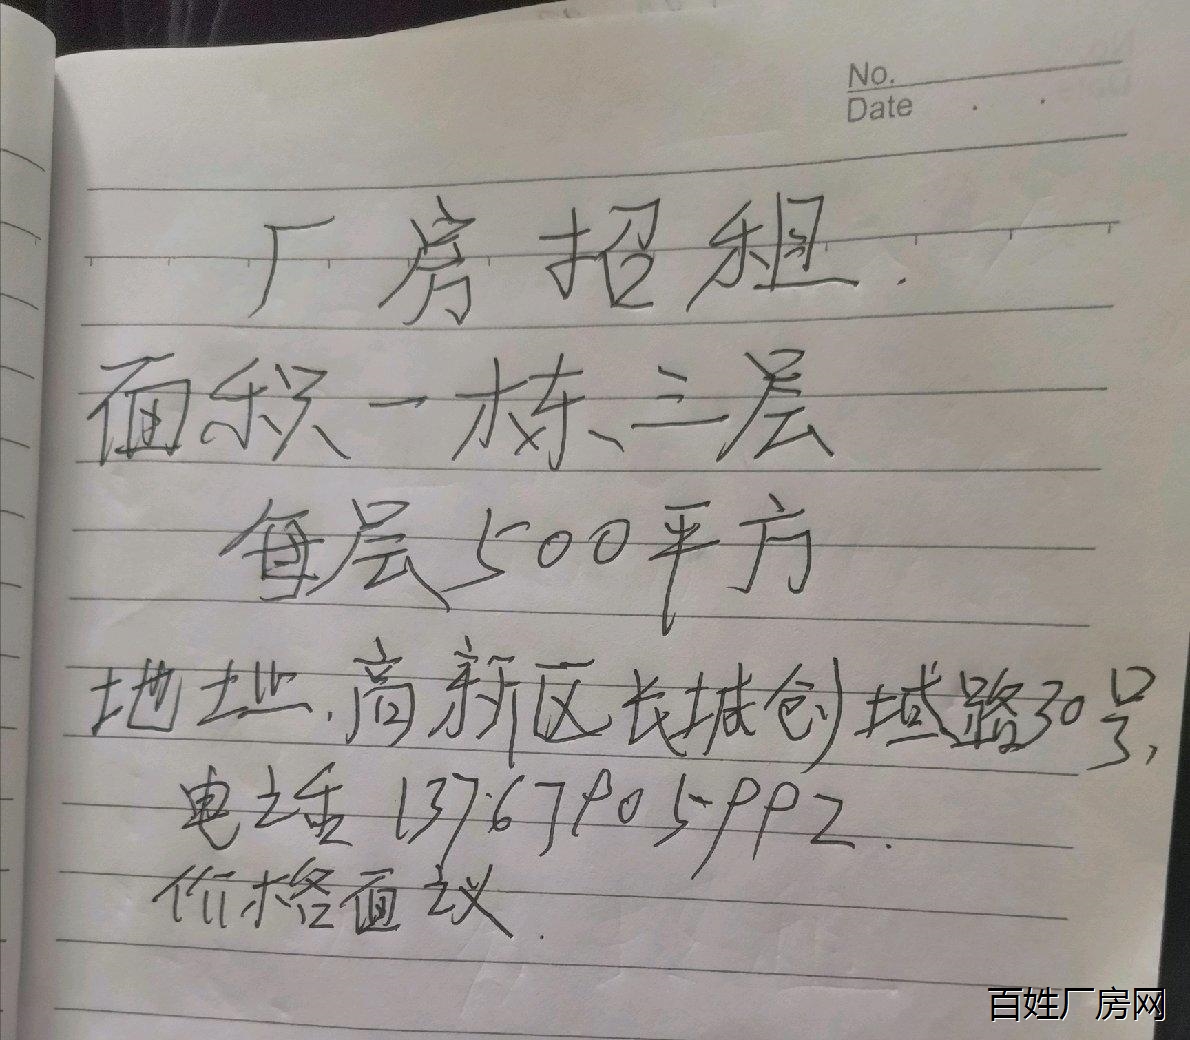 No.
Date
厂房招租.
面积一栋、三层
每层500平方
地址.高新区长城创域路30号,
电话13767905992.
价格面议.
百姓厂房网